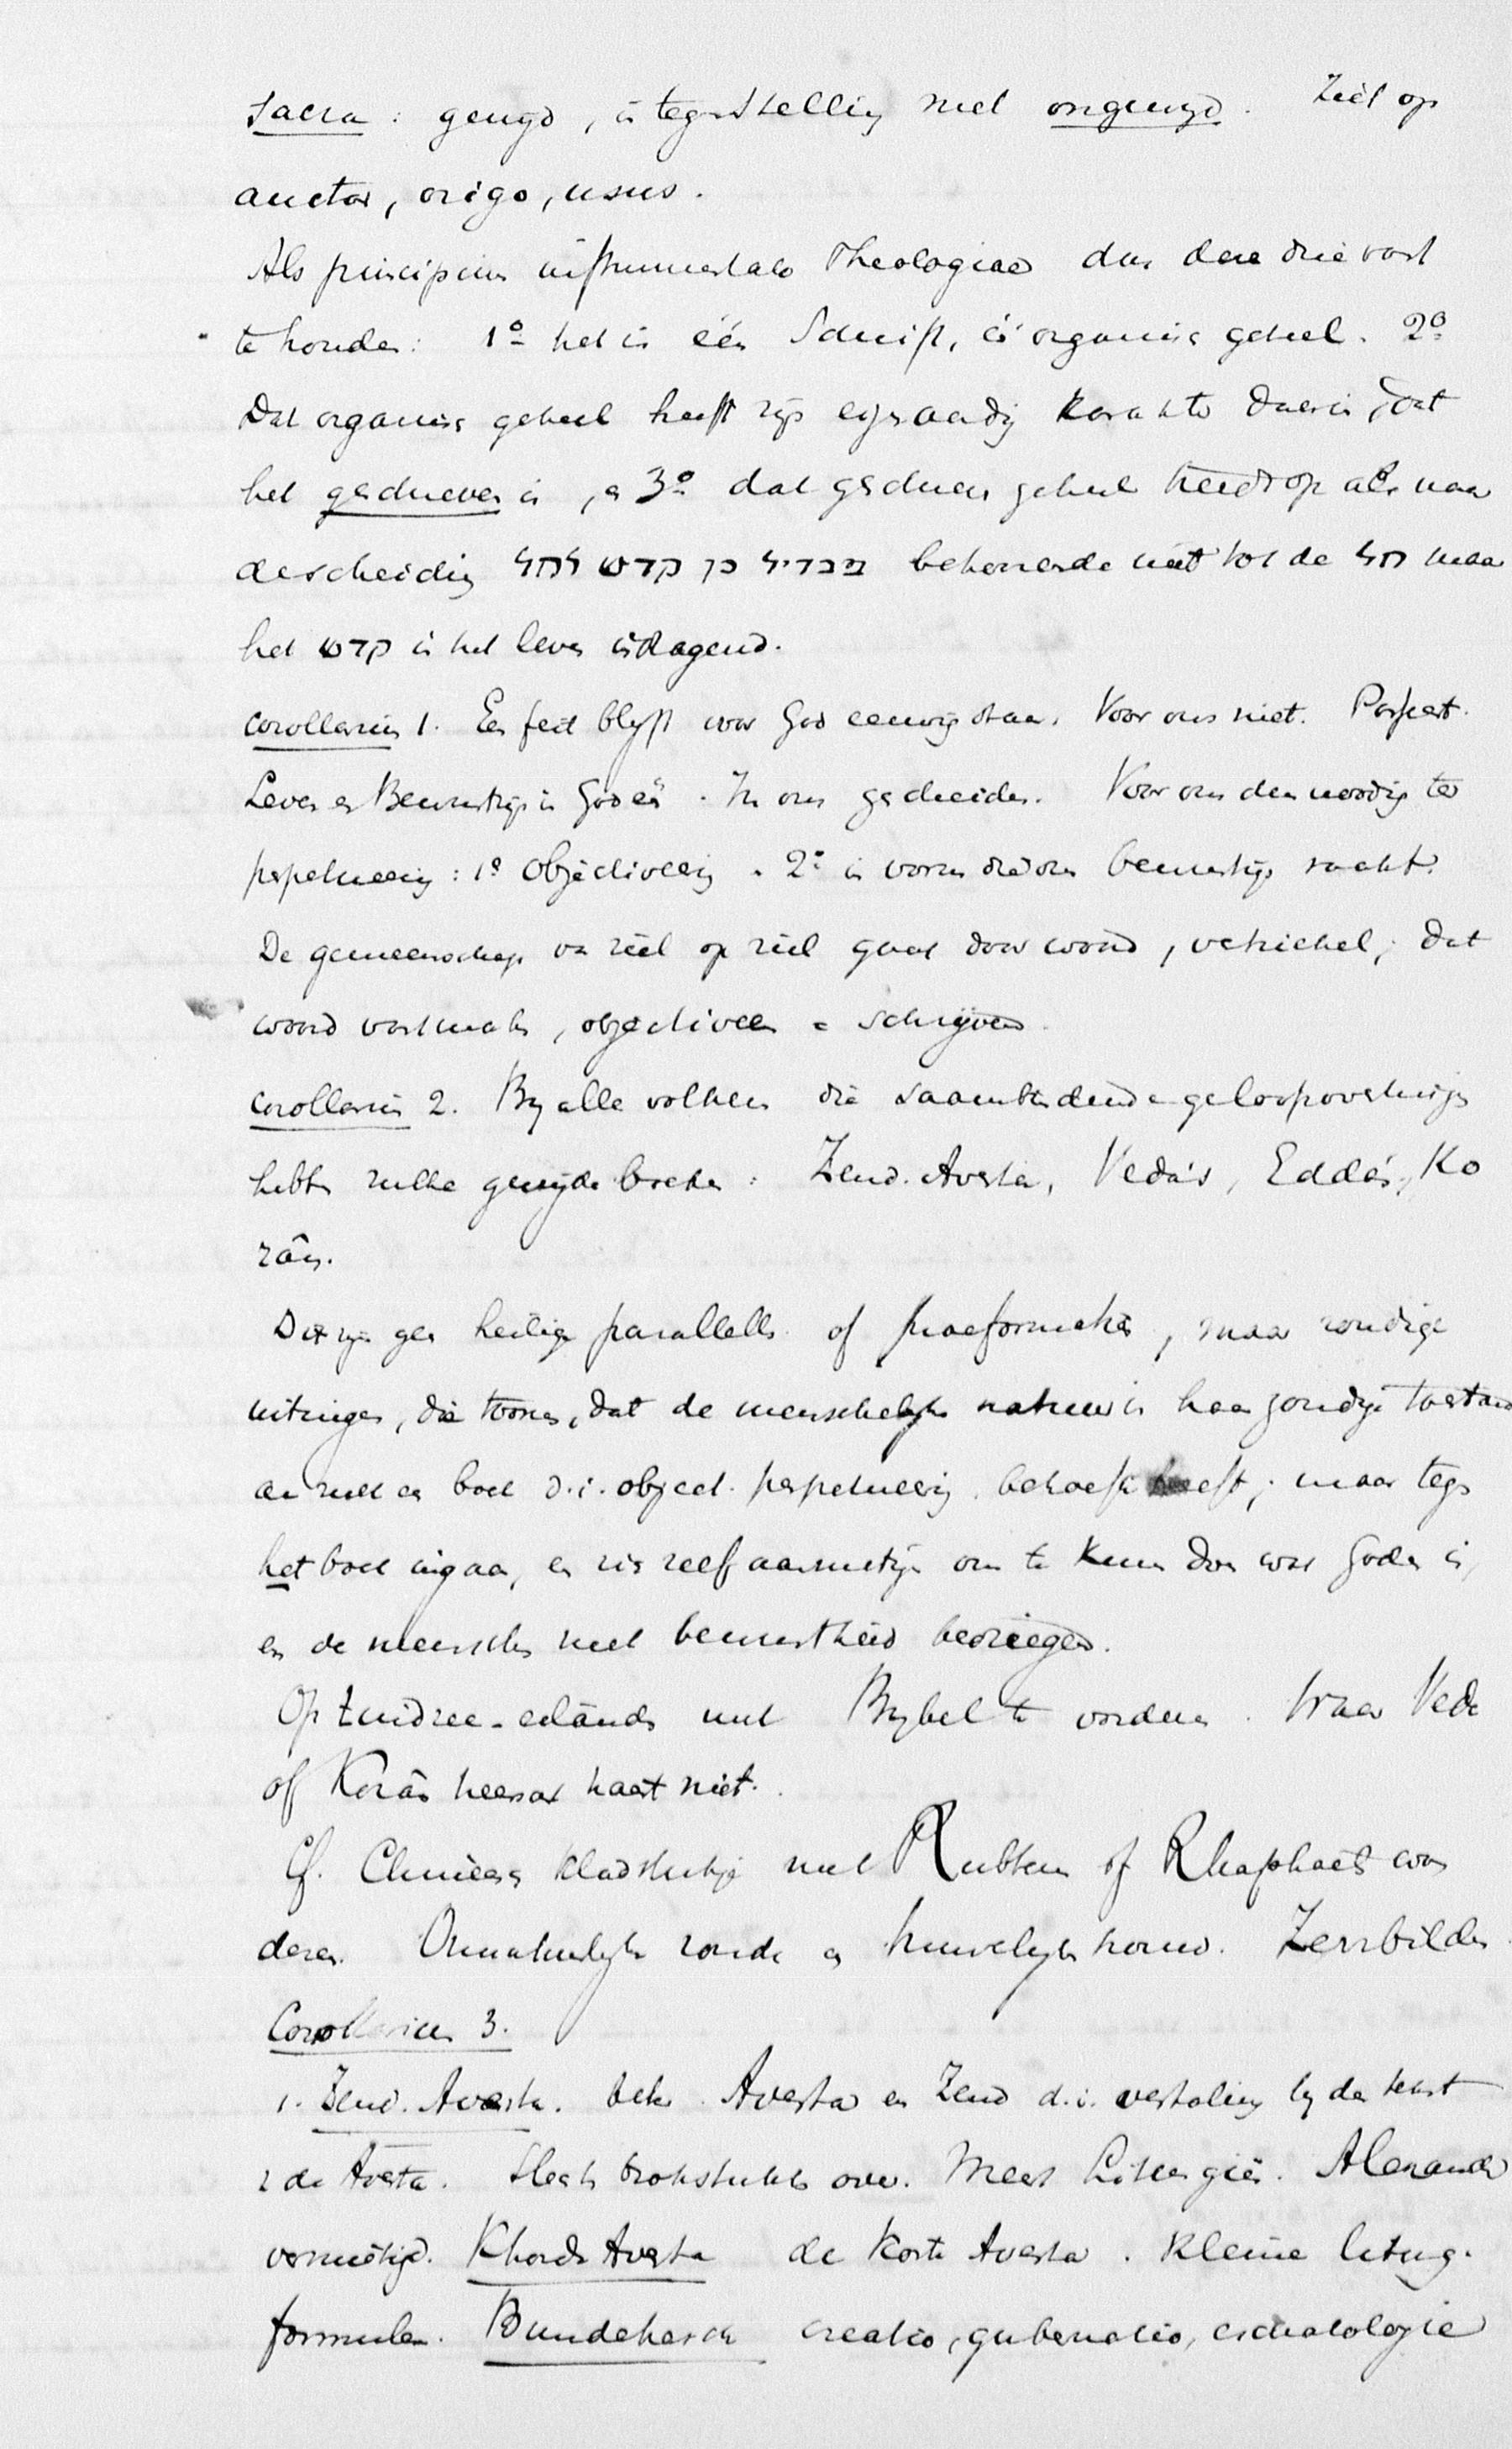 Sacra : gewyd, in tegenstelling met ongewyd. Ziet op
auctor, origo, usus.
Als principium instrumentale Theologiae dus deze drie vast
te houden: 1º het is één Schrift, één organisch geheel. 2º
Dat organisch geheel heeft zijn eigenaardig karakter daarin, dat
het geschreven is, en 3º dat geschreven geheel treedt op als naar
de scheiding מבדיל בין קדש לחל behoorende niet tot de חל maar
het קדש in het leven indragend.
Corollarium 1. Een feit blyft voor God eeuwig staan. Voor ons niet. Perfect.
Leven en Bewustzijn in God één. In ons gescheiden. Voor ons dus noodig ter
perpetueering: 1º Objectiveering. 2º in vorm die ons bewustzijn raakt.
De gemeenschap van ziel op ziel gaat door woord, vehichel; dat
woord vastmaken, objectiveeren = schrijven.
Corollarium 2. By alle volken die saambindende geloofsovertuiging
hebben zulke gewyde boeken: Zend. Avesta, Veda's, Edda's, Ko
rân.
Dit zijn geen heilige parallells of praeformaties, maar zondige
uitingen, die toonen, dat de menschelyke natuur in haar zondige toestand
aan zulk een boek d.i. object. perpetueering behoefte heeft; maar tegen
het boek ingaan, en zich zelf aanmatigen om te kunnen doen wat Godes is,
en de menschen met bewustheid bedriegen.
Op Zuidzee-eilanden met Bybel te vorderen. Waar Veda
of Korân heerscht haast niet.
Cf. Chineesch kladstukje met Rubbens of Rhaphaels woor
deren. Onnatuurlyke zonde en huwelyks trouw. Zerrbilder.
Corollarium 3.
1. Zend. Avesta. beter Avesta en Zend d.i. vertaling by de tekst
v de Avesta. Slechts brokstukken over. Meest Liturgiën. Alexander
vernietigd. Khorda Avesta de korte Avesta. Kleine liturg.
formulen. Bundehesch creatio, gubernatio, eschatologie